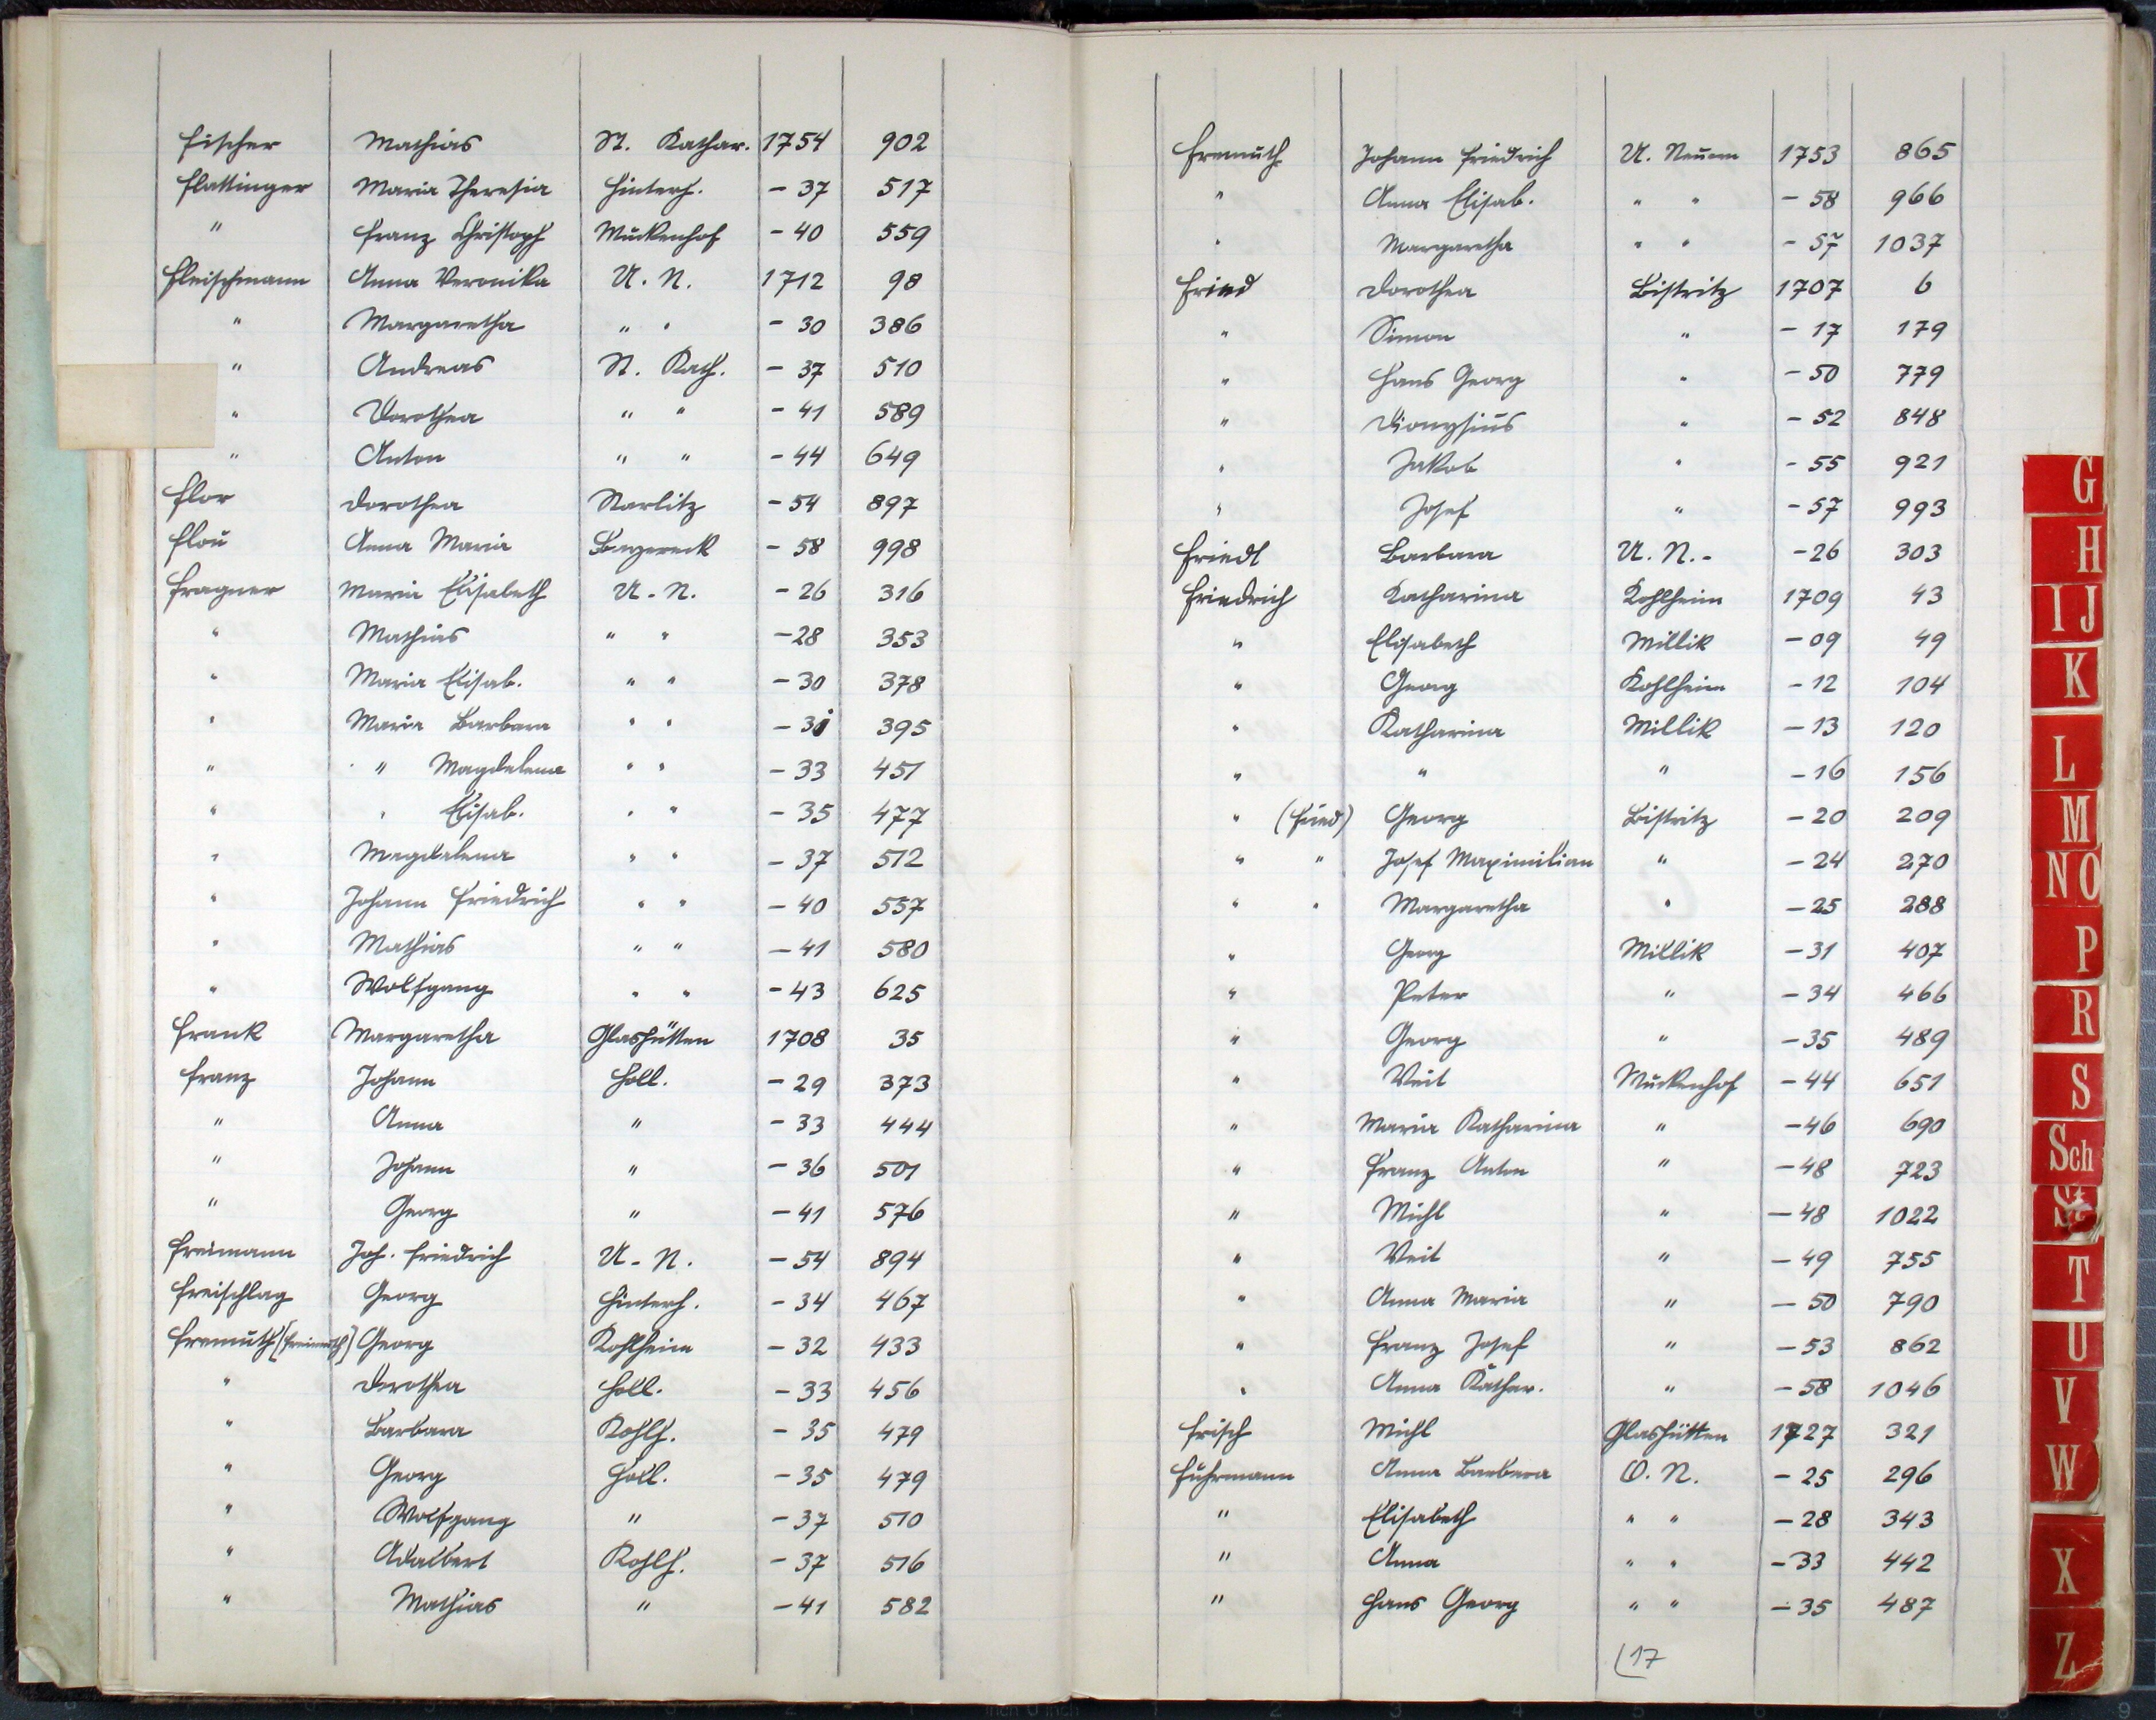 Fischer Mathias St. Kathar. 1754 902
Flattinger Maria Theresia Hinterh. - 37 517
" Franz Christoph Muckenhof - 40 559
Fleischmann Anna Veronika U. N. 1712 98
" Margaretha " " - 30 386
" Andreas St. Kath. - 37 510
" Dorothea " " - 41 589
" Anton " " - 44 649
Flor Dorothea Starlitz - 54 897
Flou Anna Maria Bayereck - 58 998
Fragner Maria Elisabeth U. N. - 26 316
" Mathias " " - 28 353
" Maria Elisab. " " - 30 378
" Maria Barbara " " - 31 395
" " Magdalena " " - 33 451
" " Elisab. " " - 35 477
" Magdalena " " - 37 512
" Johann Friedrich " " - 40 557
" Mathias " " - 41 580
" Wolfgang " " - 43 625
Frank Margaretha Glashütten 1708 35
Franz Johann Holl. - 29 373
" Anna " - 33 444
" Johann " - 36 501
" Georg " - 41 576
Freimann Joh. Friedrich U. N. - 54 894
Freischlag Georg Hinterh. - 34 467
Fremuth [Freimuth] Georg Kohlheim - 32 433
" Dorothea Holl. - 33 456
" Barbara Kohlh. - 35 479
" Georg Holl. - 35 479
" Wolfgang " - 37 510
" Adalbert Kohlh. - 37 516
" Mathias " - 41 582
Fremuth Johann Friedrich U. Neuern 1753 865
" Anna Elisab. " " - 58 966
" Margaretha " " - 57 1037
Fried Dorothea Bistritz 1707 6
" Simon " - 17 179
" Hans Georg " - 50 779
" Dionysius " - 52 848
" Jakob " - 55 921
" Josef " - 57 993
Friedl Barbara U. N. - - 26 303
Friedrich Katharina Kohlheim 1709 43
" Elisabeth Millik - 09 49
" Georg Kohlheim - 12 104
" Katharina Millik - 13 120
" " " - 16 156
" (Fried) Georg Bistritz - 20 209
" " Josef Maximilian " - 24 270
" " Margaretha " - 25 288
" Georg Millik - 31 407
" Peter " - 34 466
" Georg " - 35 489
" Veit Muckenhof - 44 651
" Maria Katharina " - 46 690
" Franz Anton " - 48 723
" Michl " - 48 1022
" Veit " - 49 755
" Anna Maria " - 50 790
" Franz Josef " - 53 862
" Anna Kathar. " - 58 1046
Frisch Michl Glashütten 1727 321
Fuhrmann Anna Barbara O. N. - 25 296
" Elisabeth " " - 28 343
" Anna " " - 33 442
" Hans Georg " " - 35 487
(17
G
H
I J
K
L
M
N O
P
R
S
Sch
St
T
U
V
W
X
Z